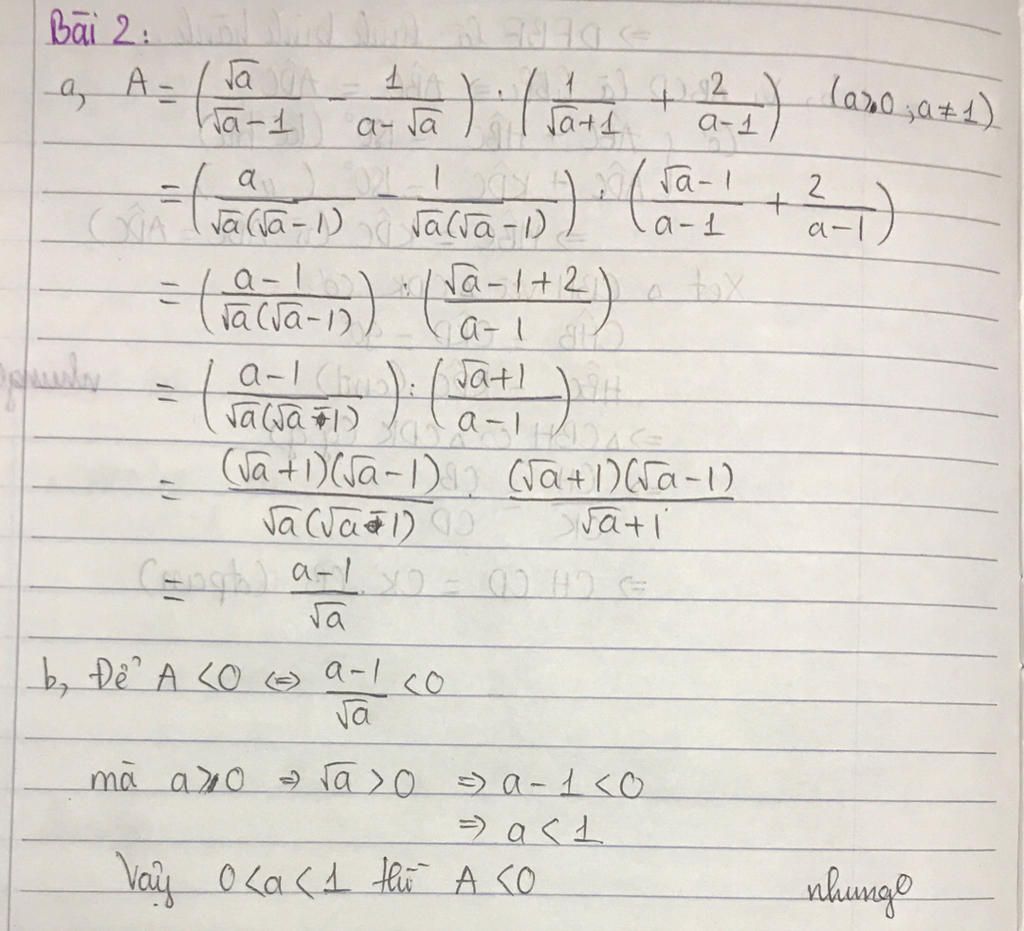 Bài 2:
a, A = (√a/(√a-1) - 1/(a-√a)) : (1/(√a+1) + 2/(a-1)) (a>0; a≠1)
= (a/(√a(√a-1)) - 1/(√a(√a-1))) : ((√a-1)/(a-1) + 2/(a-1))
= ((a-1)/(√a(√a-1))) : ((√a-1+2)/(a-1))
= ((a-1)/(√a(√a-1))) : ((√a+1)/(a-1))
= ((√a+1)(√a-1))/(√a(√a-1)) . ((√a+1)(√a-1))/(√a+1)
= (a-1)/√a
b, Để A <0 ⇔ (a-1)/√a <0
mà a>0 ⇒ √a >0 ⇒ a-1 <0
⇒ a < 1
Vậy 0<a<1 thì A <0
nhung